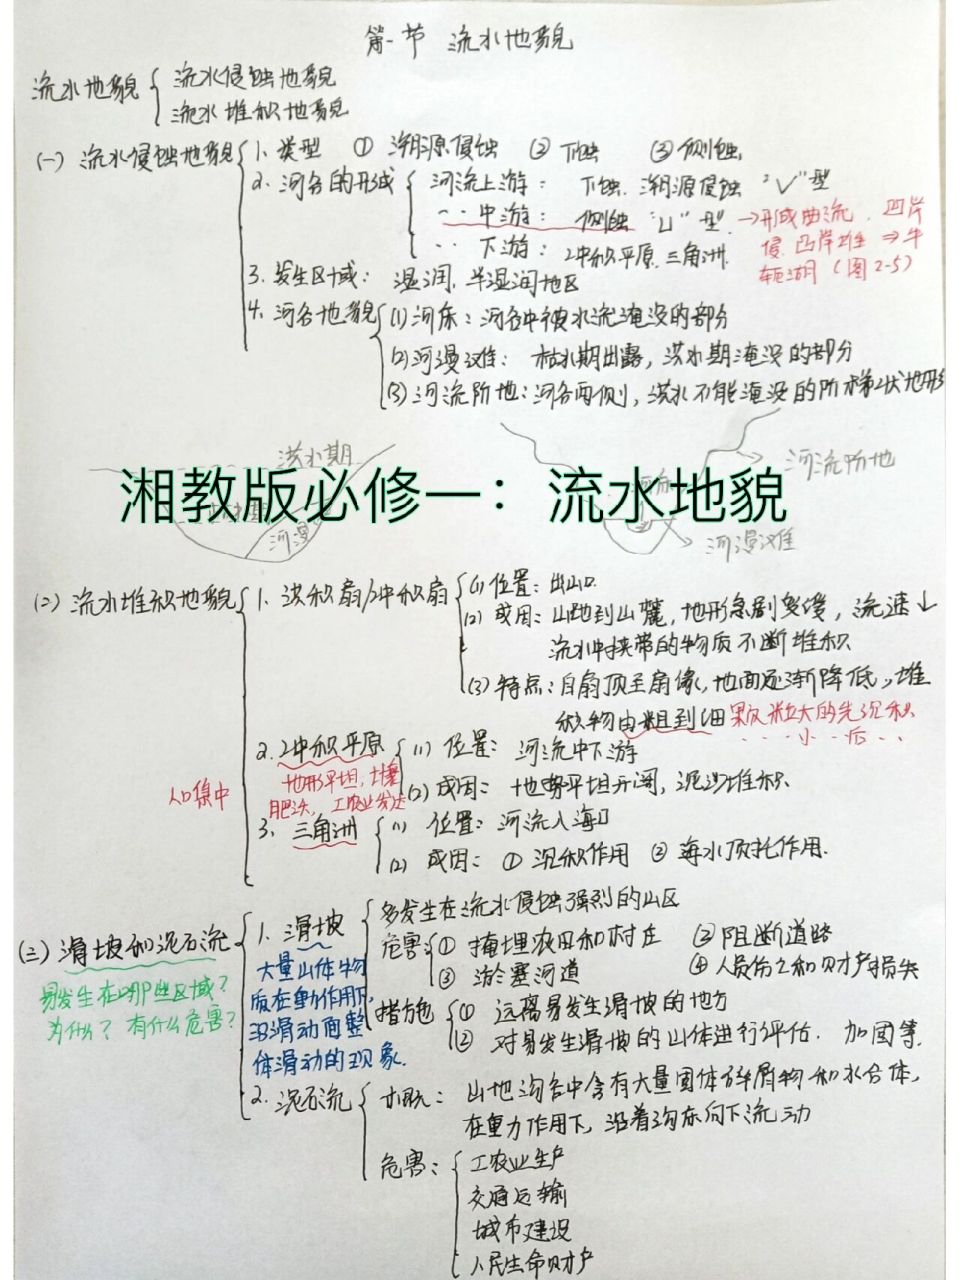 第一节 流水地貌
流水地貌 { 流水侵蚀地貌
流水堆积地貌
(一) 流水侵蚀地貌 { 1. 类型 ① 溯源侵蚀 ② 下蚀 ③ 侧蚀
2. 河谷的形成 { 河流上游: 下蚀、溯源侵蚀 "V"型
‥中游: 侧蚀 "U"型 →形成曲流, 凹岸
侵、凸岸堆 ⇒ 牛
轭湖 (图2-5)
‥下游: 冲积平原、三角洲
3. 发生区域: 湿润、半湿润地区
4. 河谷地貌 { (1) 河床: 河谷中被水流淹没的部分
(2) 河漫滩: 枯水期出露, 洪水期淹没的部分
(3) 河流阶地: 河谷两侧, 洪水不能淹没的阶梯状地形
洪水期
河流阶地
湘教版必修一: 流水地貌
河漫
河漫滩
(2) 流水堆积地貌 { 1. 洪积扇/冲积扇 { (1) 位置: 出山口
(2) 成因: 山地到山麓, 地形急剧变缓, 流速↓
流水中挟带的物质不断堆积
(3) 特点: 自扇顶至扇缘, 地面逐渐降低, 堆
积物由粗到细 颗粒大的先沉积
‥‥小‥后‥
2. 冲积平原 { (1) 位置: 河流中下游
地形平坦, 土壤
肥沃, 工农业发达
人口集中
(2) 成因: 地势平坦开阔, 泥沙堆积
3. 三角洲 { (1) 位置: 河流入海口
(2) 成因: ① 沉积作用 ② 海水顶托作用.
(三) 滑坡和泥石流 { 1. 滑坡 { 多发生在流水侵蚀强烈的山区
易发生在哪些区域?
为什么? 有什么危害?
大量山体物
质在重力作用下,
沿滑动面整
体滑动的现象.
危害: ① 掩埋农田和村庄 ② 阻断道路
③ 淤塞河道 ④ 人员伤亡和财产损失
措施 { ① 远离易发生滑坡的地方
② 对易发生滑坡的山体进行评估、加固等.
2. 泥石流 { 概况: 山地沟谷中含有大量固体碎屑物和水合体,
在重力作用下, 沿着沟床向下流动
危害: { 工农业生产
交通运输
城市建设
人民生命财产